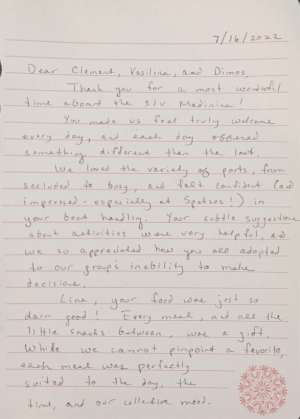 7/16/2022
Dear Clement, Vasilina, and Dimos,
Thank you for a most wonderful
time aboard the s/v
You made us feel truly welcome
every day, and each day offered
something different than the last.
We loved the variety of ports, from
secluded to busy, and felt confident (and
impressed - especially at Spetses!) in
your boat handling. Your subtle suggestions
about activities were very helpful, and
we so appreciated how you all adapted
to our group's inability to make
decisions.
Lina, your food was just so
darn good! Every meal, and all the
little snacks between, was a gift.
While we cannot pinpoint a favorite,
each meal was perfectly
suited to the day, the
time, and our collective mood.